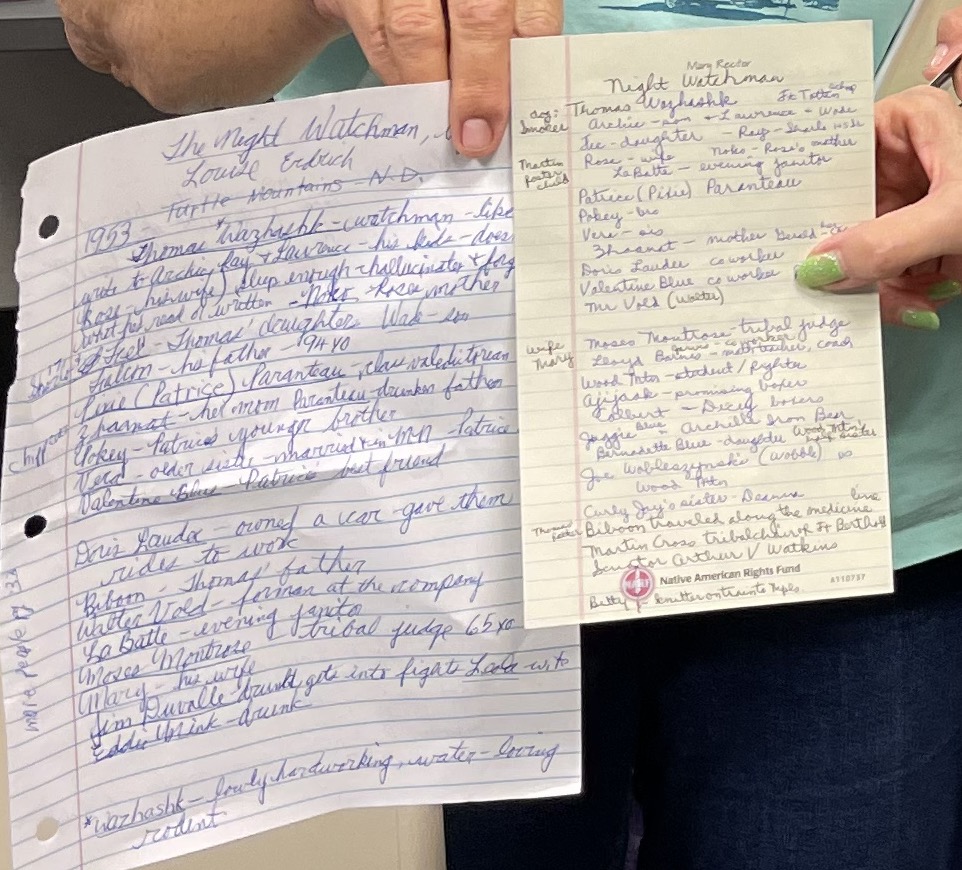 The Night Watchman,
Louise Erdrich
Turtle Mountains - N.D.
1953
Thomas Wazhashk - watchman - like
write to Archie, Fay & Lawrence - his kids - does
Rose - his wife) slup enough - hallucinates & forg
what he's read or written - Noko - Rose's mother
"Fee" - Thomas' daughter Wade - son
his father - 94 yo
Pixie (Patrice) Paranteau, class valedictorian
Zhaanat - her mom Paranteau - drunken father
Pokey - Patrice's younger brother
Vera - older sister - married & in MN Patrice
Valentine Blue - Patrice's best friend
Doris Lauder - owned a car - gave them
rides to work
Biboon - Thomas' father
Walter Vold - forman at the company
La Batte - evening janitor
Moses Montrose tribal judge 65 yo
Mary - his wife
Jim Duvalle - drunk gets into fights
Eddie Mink - drunk
*Wazhashk - lowly hardworking, water-loving
rodent
more people pg 32
Mary Reutor
Night Watchman
dog: Smoker
Thomas Wazhashk Ft Totten
Archie - son & Lawrence + Wade
Fee - daughter
Rose - wife Noko - Rose's mother
LaBatte - evening janitor
Martin
foster
child
Patrice (Pixie) Paranteau
Pokey - bro
Vera - sis
Zhaanat - mother
Doris Lauder coworker
Valentine Blue co worker
Mr Vold (Walter)
wife
Mary
Moses Montrose - tribal judge
Lloyd Barnes - math teacher, coach
Wood Mtn - student/fighter
Ajijaak - promising boxer
Juggie Blue - Archille Iron Bear
Bernadette Blue - daughter Wood Mtn's half sister
Joe Wobleszynski's (Wobble) vs
Wood Mtn
Curly Jay's sister - Deanna
Biboon traveled along the medicine line
Martin Cross tribal chair of Ft Berthold
Senator Arthur V Watkins
NARF
Native American Rights Fund
A110737